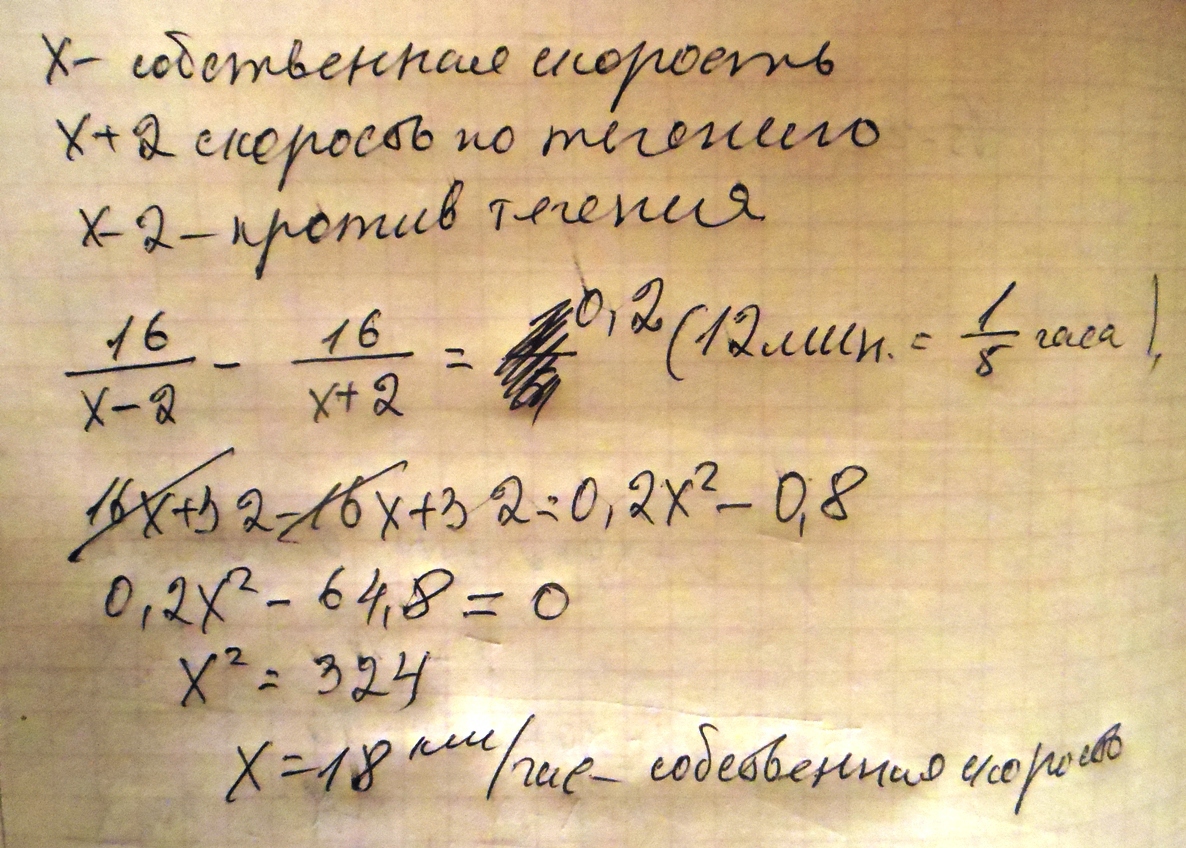 x - собственная скорость
x+2 скорость по течению
x-2 - против течения
16/(x-2) - 16/(x+2) = 0,2 (12 мин. = 1/5 часа),
16x+32-16x+32=0,2x²-0,8
0,2x²-64,8=0
x²=324
x=18 км/час - собственная скорость